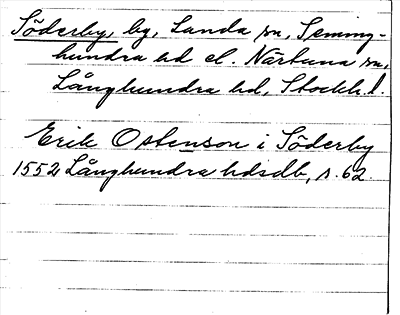 Söderby, by, Lunda sn, Seming-
hundra hd el. Närtuna sn,
Långhundra hd, Stockh. l.
Erik Ostenson i Söderby
1552 Långhundra hdsdb, s. 62